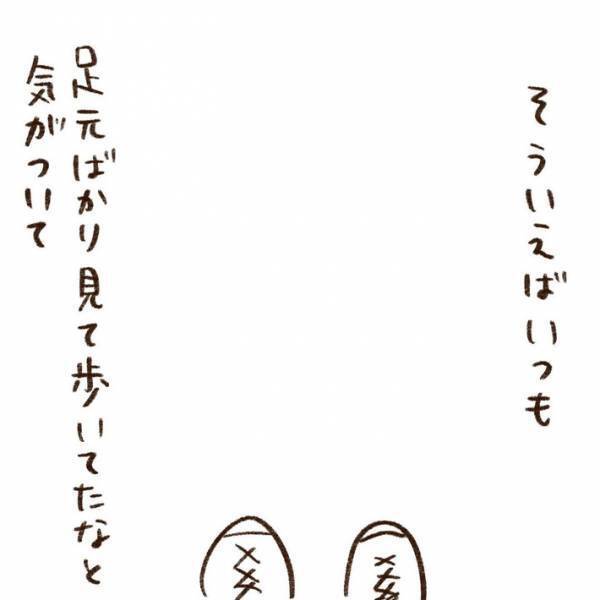 そういえばいつも
足元ばかり見て歩いてたなと
気がついて